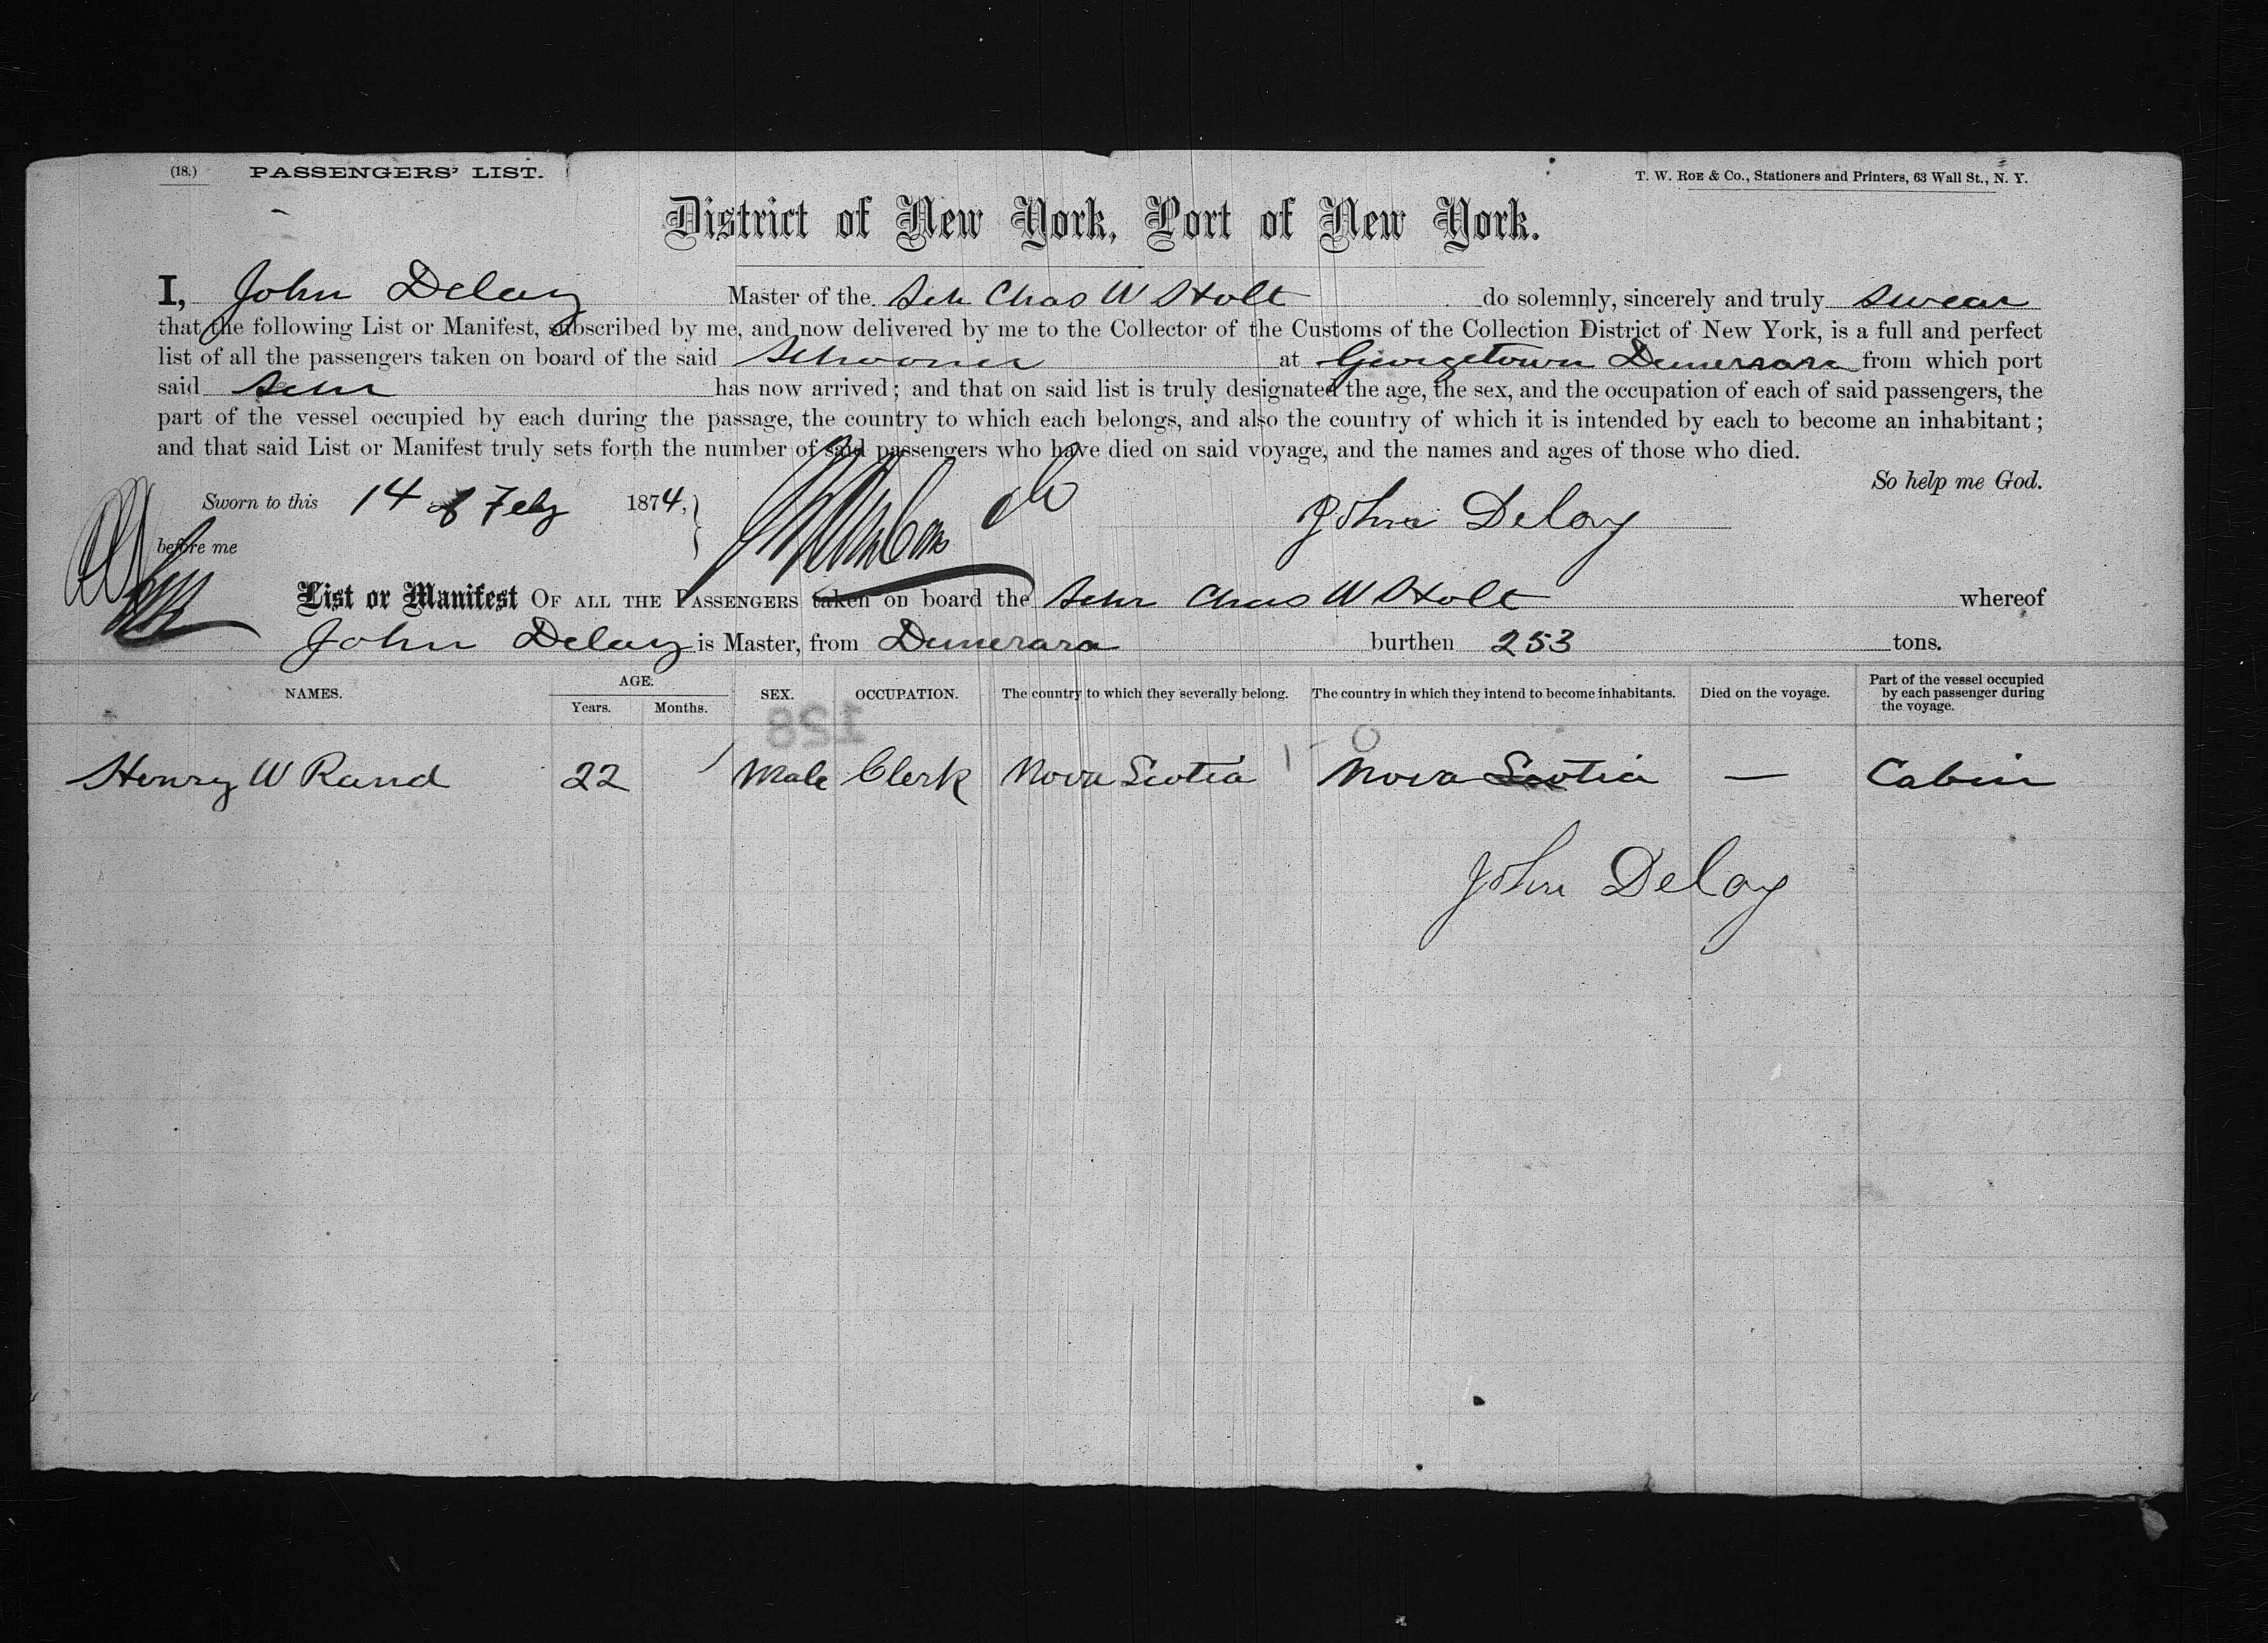 (18.) PASSENGERS' LIST. T. W. ROE & Co., Stationers and Printers, 63 Wall St., N. Y.
District of New York, Port of New York.
I, John Delay Master of the Sch Chas W Holt do solemnly, sincerely and truly swear
that the following List or Manifest, subscribed by me, and now delivered by me to the Collector of the Customs of the Collection District of New York, is a full and perfect
list of all the passengers taken on board of the said Schooner at Georgetown Demerara from which port
said Schr has now arrived; and that on said list is truly designated the age, the sex, and the occupation of each of said passengers, the
part of the vessel occupied by each during the passage, the country to which each belongs, and also the country of which it is intended by each to become an inhabitant;
and that said List or Manifest truly sets forth the number of said passengers who have died on said voyage, and the names and ages of those who died.
So help me God.
Sworn to this 14 of Feby 1874, John Delay
before me
List or Manifest OF ALL THE PASSENGERS taken on board the Schr Chas W Holt whereof
John Delay is Master, from Demerara burthen 253 tons.
NAMES. AGE. Years. Months. SEX. OCCUPATION. The country to which they severally belong. The country in which they intend to become inhabitants. Died on the voyage. Part of the vessel occupied by each passenger during the voyage.
128
Henry W Rand 22 Male Clerk Nova Scotia Nova Scotia — Cabin
John Delay